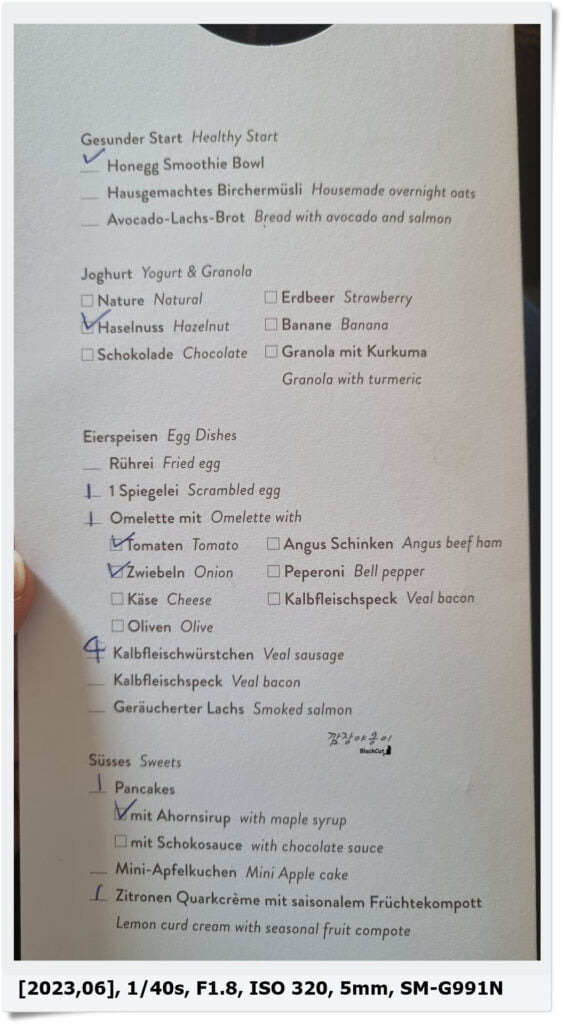 Gesunder Start Healthy Start
✓ Honegg Smoothie Bowl
Hausgemachtes Birchermüsli Housemade overnight oats
Avocado-Lachs-Brot Bread with avocado and salmon
Joghurt Yogurt & Granola
☐ Nature Natural ☐ Erdbeer Strawberry
☑ Haselnuss Hazelnut ☐ Banane Banana
☐ Schokolade Chocolate ☐ Granola mit Kurkuma
Granola with turmeric
Eierspeisen Egg Dishes
Rührei Fried egg
1 1 Spiegelei Scrambled egg
1 Omelette mit Omelette with
☑ Tomaten Tomato ☐ Angus Schinken Angus beef ham
☑ Zwiebeln Onion ☐ Peperoni Bell pepper
☐ Käse Cheese ☐ Kalbfleischspeck Veal bacon
☐ Oliven Olive
4 Kalbfleischwürstchen Veal sausage
Kalbfleischspeck Veal bacon
Geräucherter Lachs Smoked salmon
깜장야옹이
BlackCat
Süsses Sweets
1 Pancakes
☑ mit Ahornsirup with maple syrup
☐ mit Schokosauce with chocolate sauce
Mini-Apfelkuchen Mini Apple cake
1 Zitronen Quarkcrème mit saisonalem Früchtekompott
Lemon curd cream with seasonal fruit compote
[2023,06], 1/40s, F1.8, ISO 320, 5mm, SM-G991N